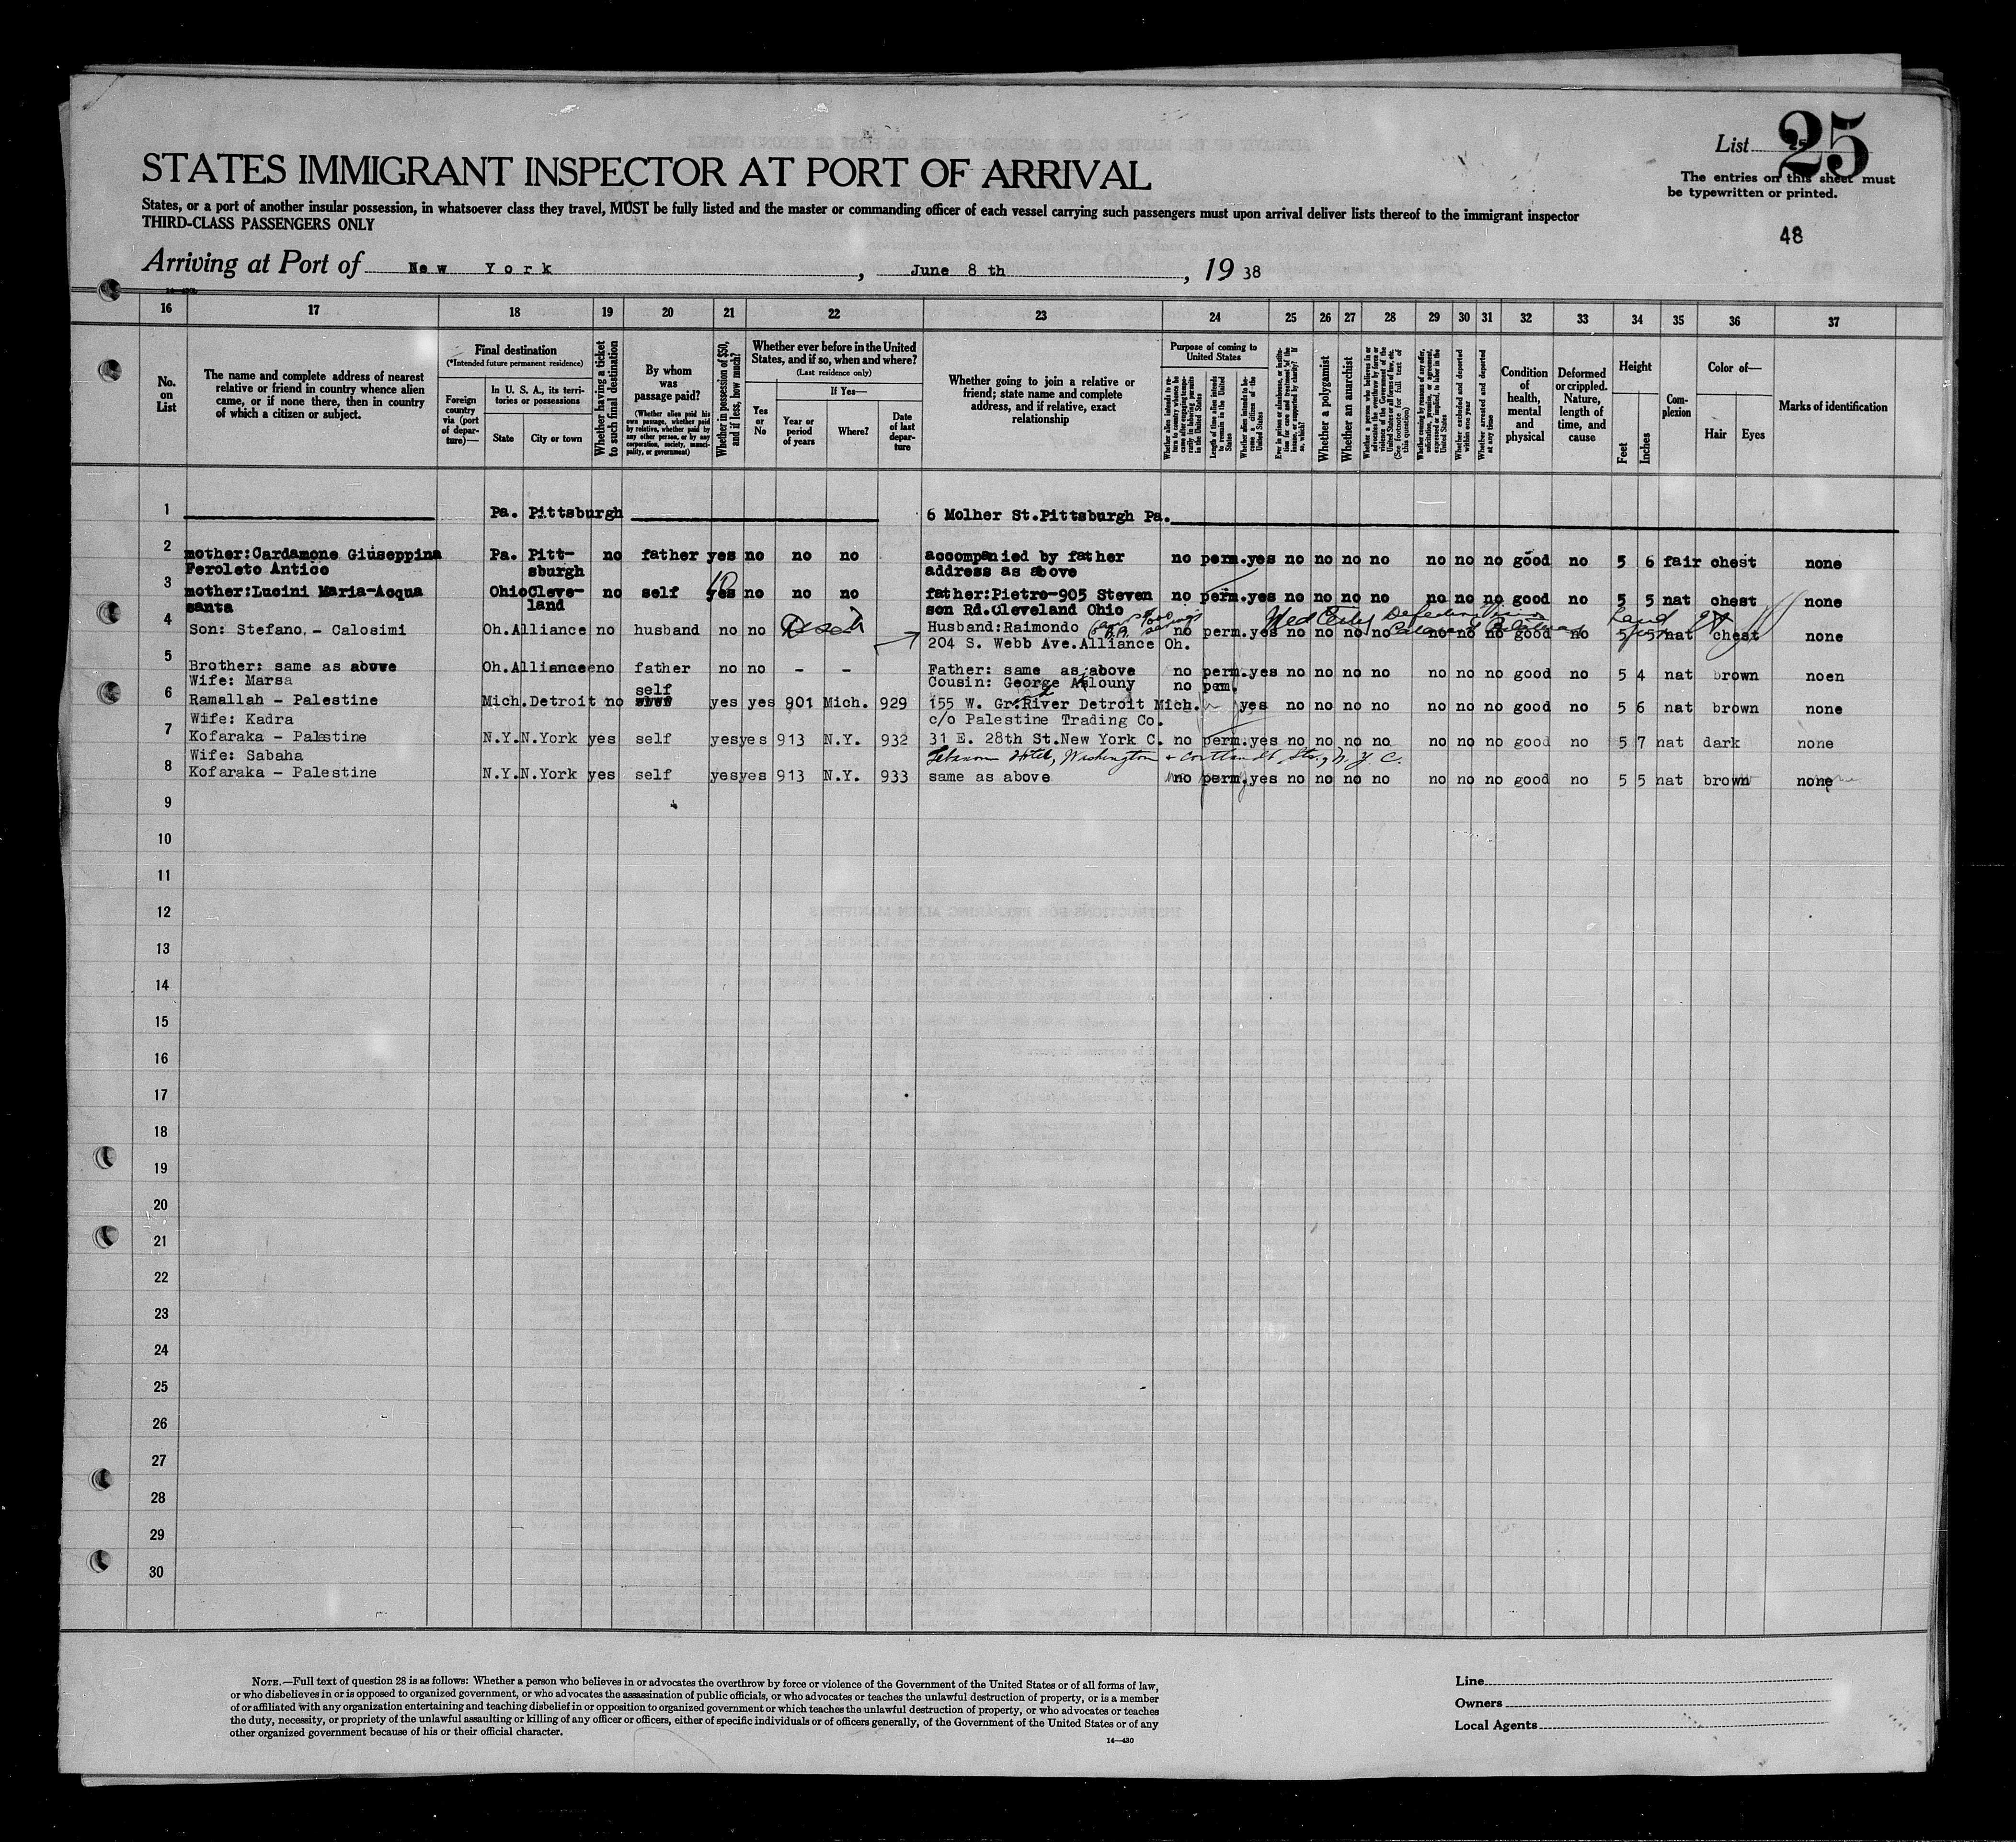 List 25
The entries on this sheet must
be typewritten or printed.
STATES IMMIGRANT INSPECTOR AT PORT OF ARRIVAL
States, or a port of another insular possession, in whatsoever class they travel, MUST be fully listed and the master or commanding officer of each vessel carrying such passengers must upon arrival deliver lists thereof to the immigrant inspector
THIRD-CLASS PASSENGERS ONLY
48
Arriving at Port of New York, June 8 th, 19 38
16 17 18 19 20 21 22 23 24 25 26 27 28 29 30 31 32 33 34 35 36 37
No. on List
The name and complete address of nearest relative or friend in country whence alien came, or if none there, then in country of which a citizen or subject.
Final destination
(*Intended future permanent residence)
Foreign country via (port of departure)—
In U. S. A., its territories or possessions
State
City or town
Whether having a ticket to such final destination
By whom was passage paid?
(Whether alien paid his own passage, whether paid by relative, whether paid by any other person, or by any corporation, society, municipality, or government)
Whether in possession of $50, and if less, how much?
Whether ever before in the United States, and if so, when and where?
(Last residence only)
Yes or No
If Yes—
Year or period of years
Where?
Date of last departure
Whether going to join a relative or friend; state name and complete address, and if relative, exact relationship
Purpose of coming to United States
Length of time alien intends to remain in the United States
Whether alien intends to become a citizen of the United States
Whether a polygamist
Whether an anarchist
(See footnote for full text of this question)
Whether arrested and deported at any time
Condition of health, mental and physical
Deformed or crippled. Nature, length of time, and cause
Height
Feet
Inches
Complexion
Color of—
Hair
Eyes
Marks of identification
1 Pa. Pittsburgh 6 Molher St.Pittsburgh Pa.
2 mother:Cardamone Giuseppina Pa. Pitt- no father yes no no no accompanied by father no perm.yes no no no no no no no good no 5 6 fair chest none
Feroleto Antico sburgh address as above
3 mother:Lucini Maria-Acqua Ohio Cleve- no self yes 10 no no no father:Pietro-905 Steven no perm.yes no no no no no no no good no 5 5 nat chest none
santa land son Rd.Cleveland Ohio
4 Son: Stefano. - Calosimi Oh. Alliance no husband no no Husband:Raimondo no perm.yes no no no no no no no good no 5 5 nat chest none
204 S. Webb Ave.Alliance Oh.
5 Brother: same as above Oh. Alliance no father no no - - Father: same as above no perm.yes no no no no no no no good no 5 4 nat brown noen
6 Wife: Marsa self Cousin: George Aslouny no perm.
Ramallah - Palestine Mich. Detroit no yes yes 901 Mich. 929 155 W. Gr.River Detroit Mich. yes no no no no no no no good no 5 6 nat brown none
7 Wife: Kadra c/o Palestine Trading Co.
Kofaraka - Palestine N.Y. N.York yes self yes yes 913 N.Y. 932 31 E. 28th St.New York C. no perm.yes no no no no no no no good no 5 7 nat dark none
8 Wife: Sabaha Lebanon Hotel, Washington & Cortlandt Sts., N. Y. C.
Kofaraka - Palestine N.Y. N.York yes self yes yes 913 N.Y. 933 same as above no perm.yes no no no no no no no good no 5 5 nat brown none
9
10
11
12
13
14
15
16
17
18
19
20
21
22
23
24
25
26
27
28
29
30
NOTE.—Full text of question 28 is as follows: Whether a person who believes in or advocates the overthrow by force or violence of the Government of the United States or of all forms of law,
or who disbelieves in or is opposed to organized government, or who advocates the assassination of public officials, or who advocates or teaches the unlawful destruction of property, or is a member
of or affiliated with any organization entertaining and teaching disbelief in or opposition to organized government or which teaches the unlawful destruction of property, or who advocates or teaches
the duty, necessity, or propriety of the unlawful assaulting or killing of any officer or officers, either of specific individuals or of officers generally, of the Government of the United States or of any
other organized government because of his or their official character.
14—430
Line
Owners
Local Agents